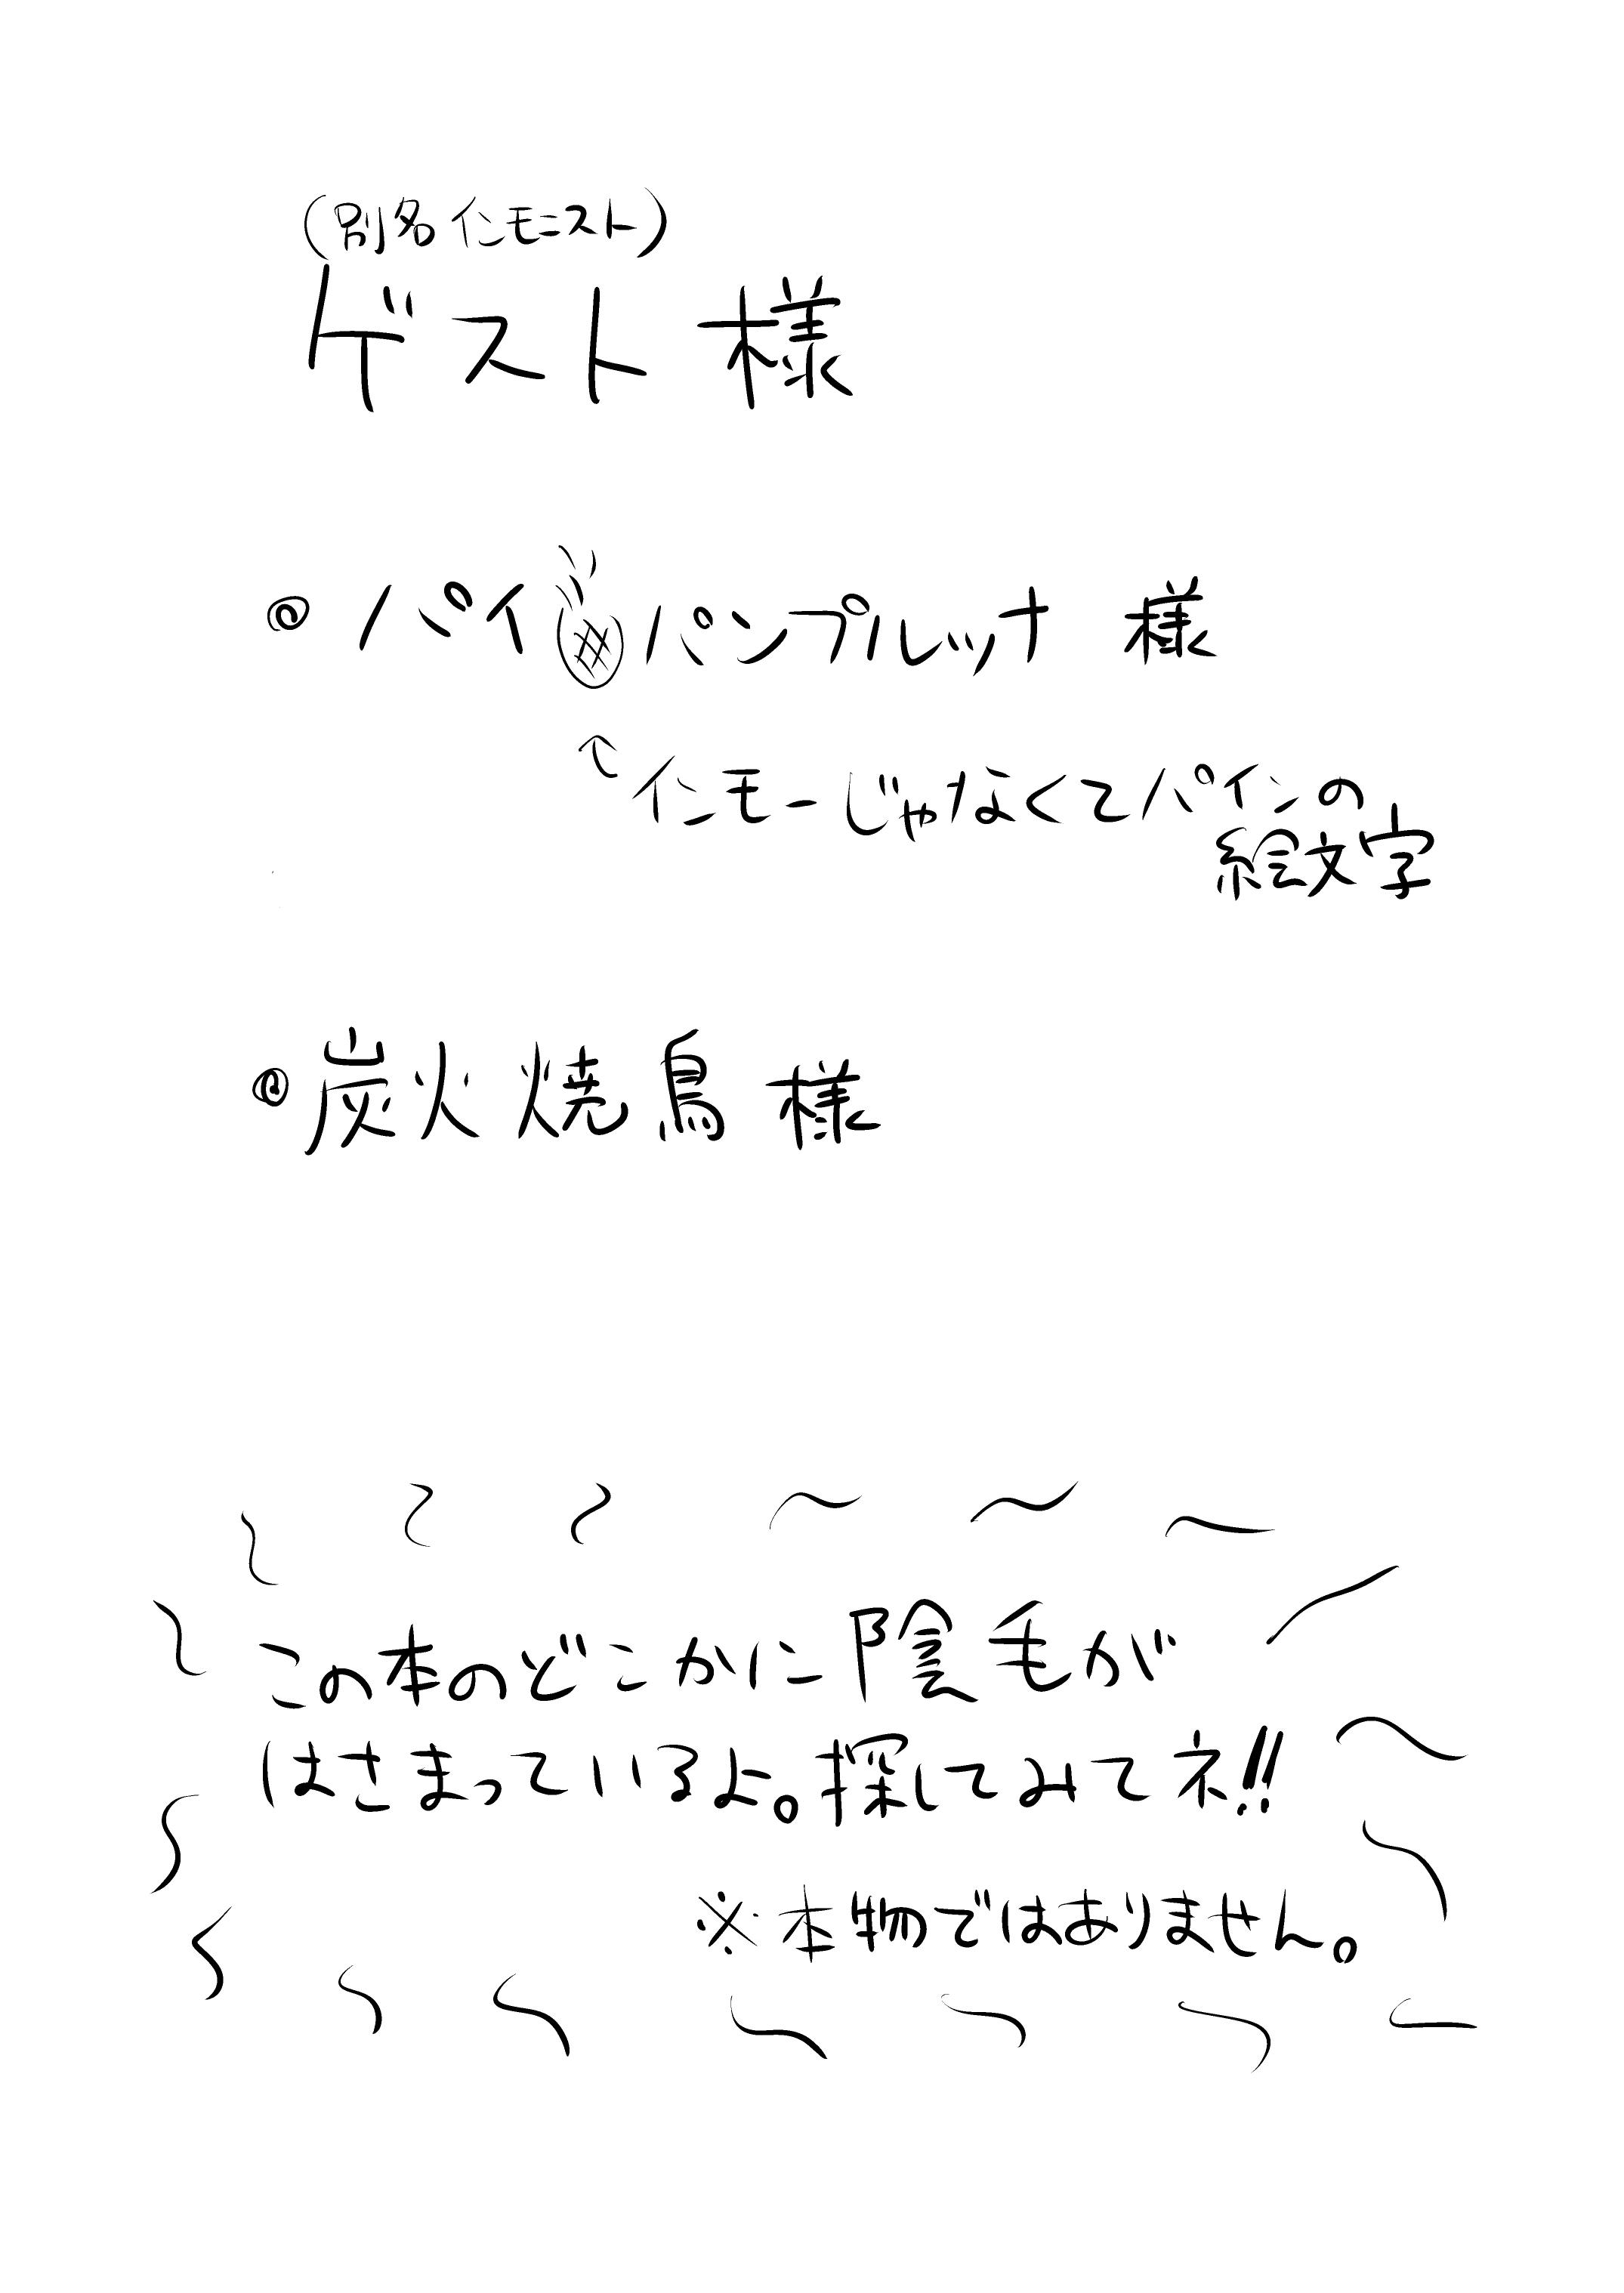 (別名インモニスト)
ゲスト様
◎パイ🍍パンプルレッナ様
↑インモーじゃなくてパインの
絵文字
◎炭火焼鳥様
この本のどこかに陰毛が
はさまっているよ。探してみてネ!!
※本物ではありません。